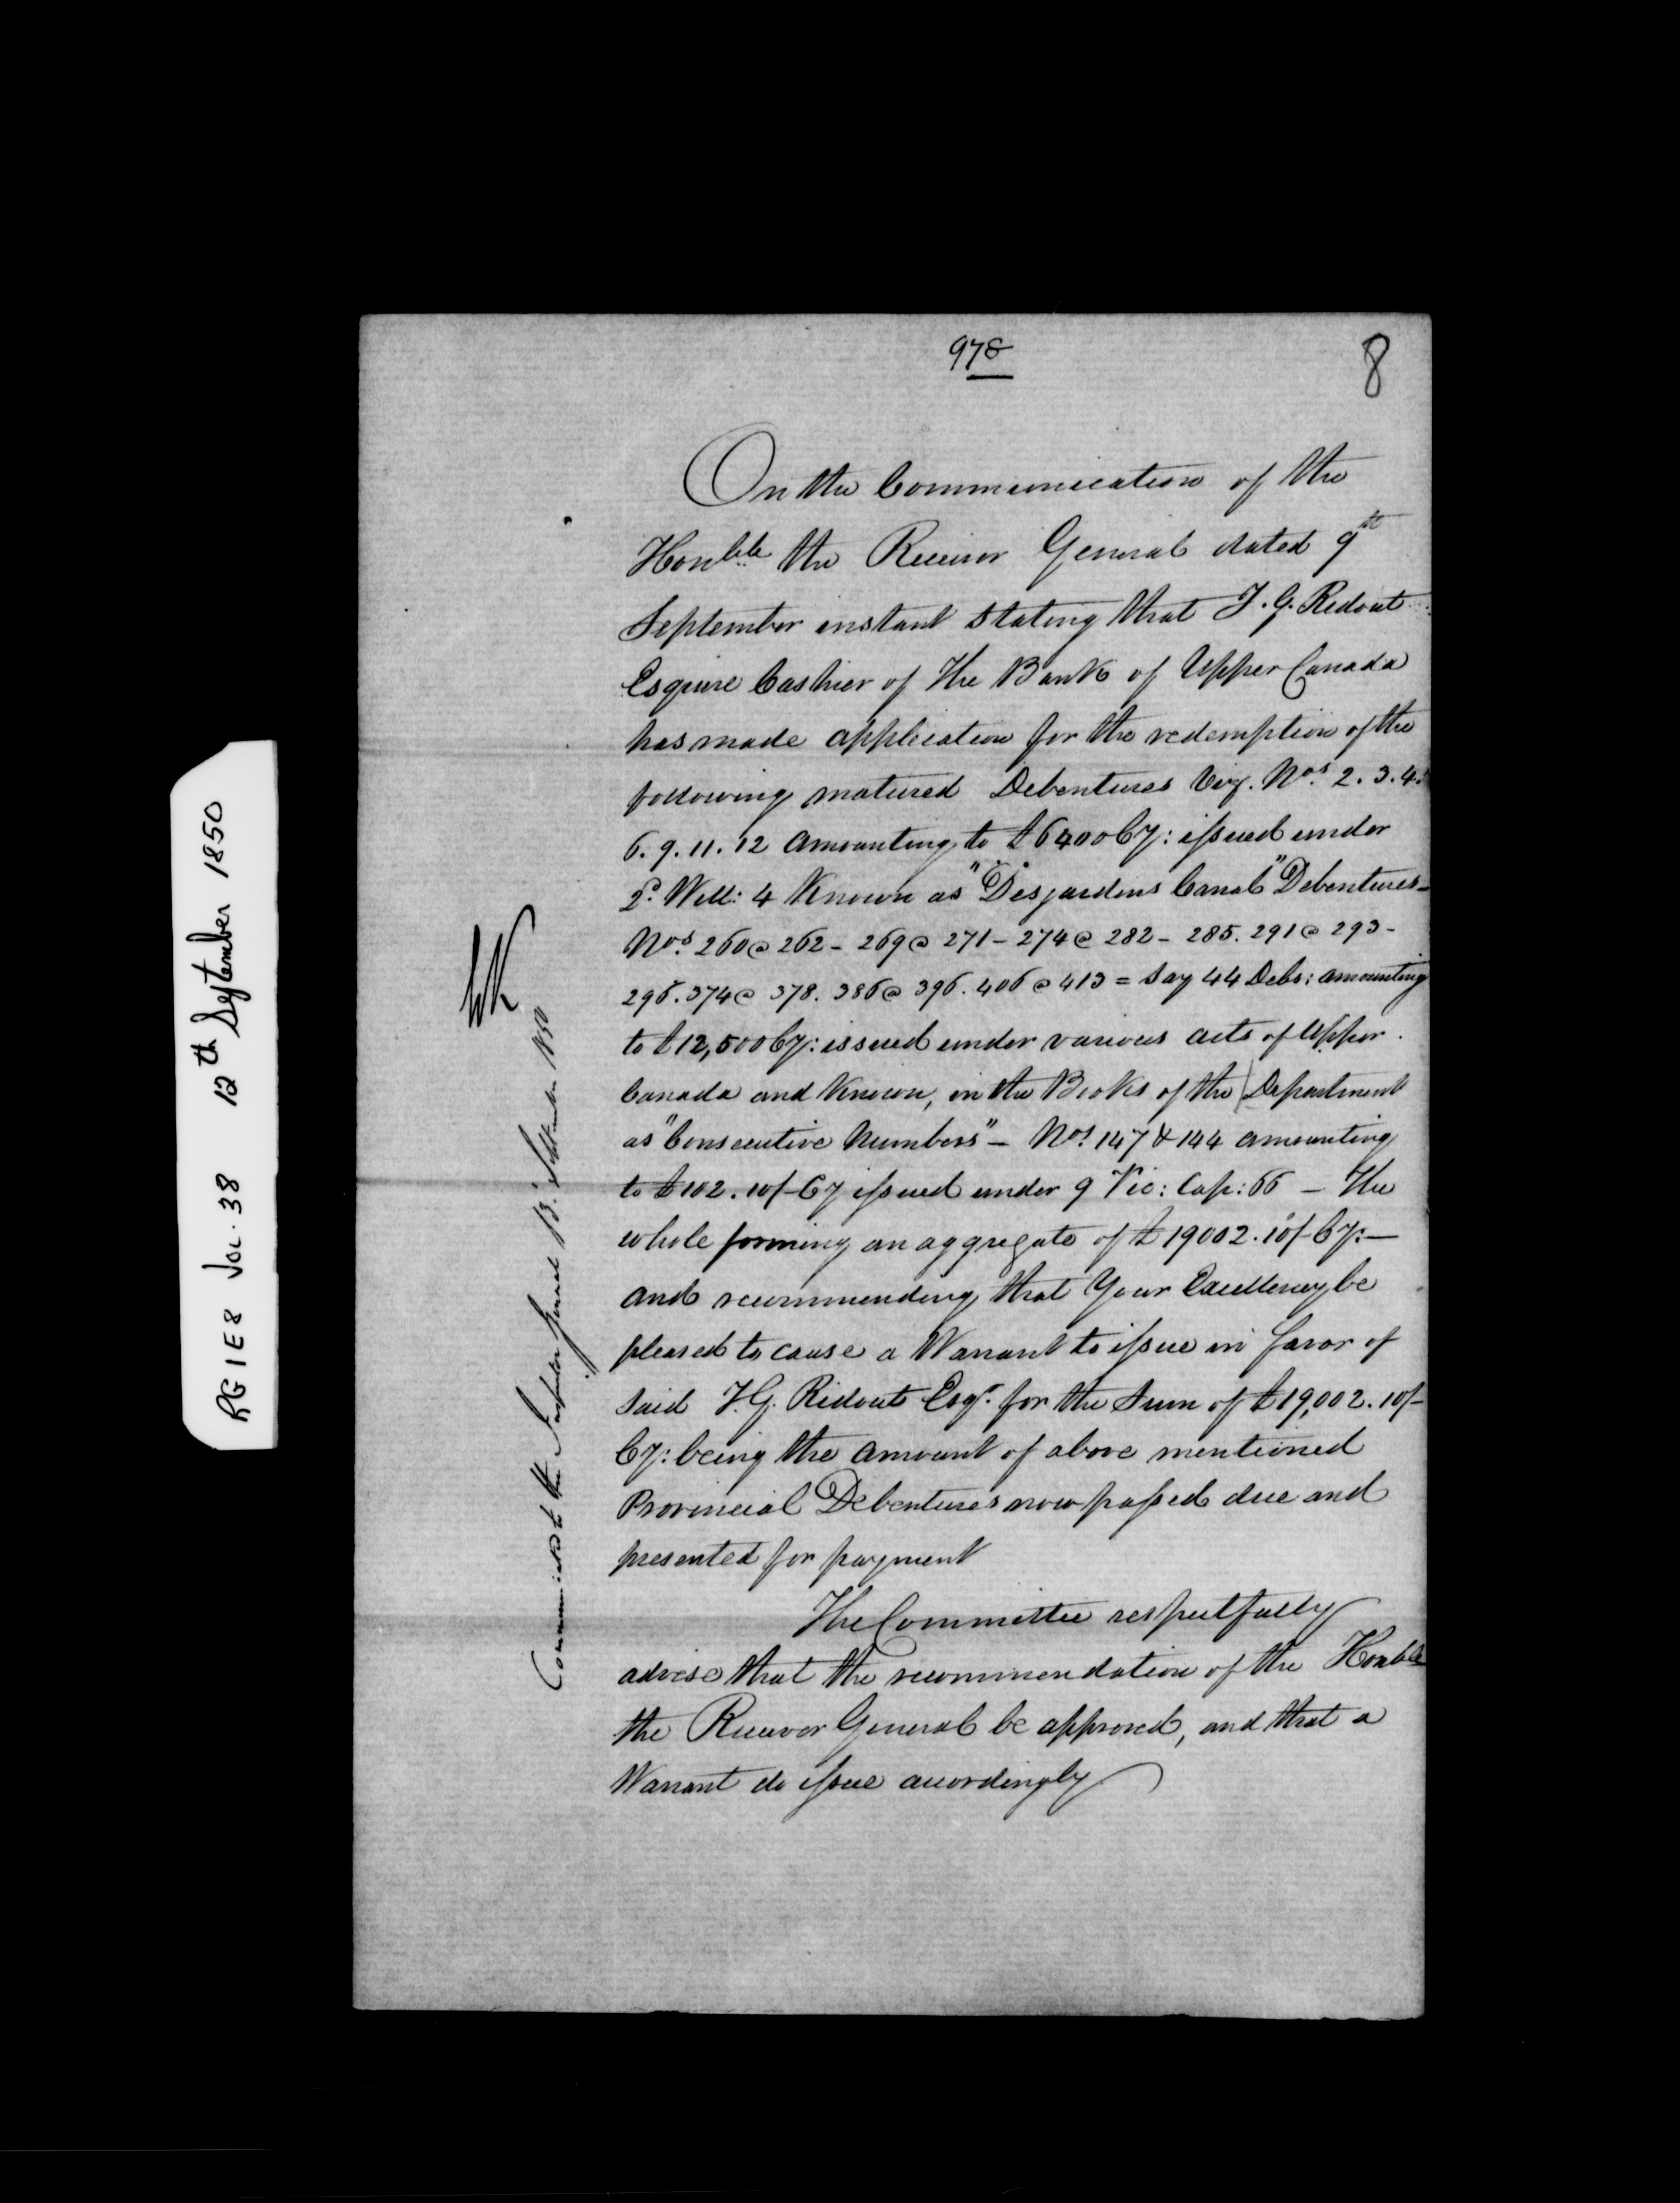 978
8
On the Communication of the
Honble the Receiver General dated 9th
September instant stating that T. G. Ridout
Esquire Cashier of The Bank of Upper Canada
has made application for the redemption of the
following matured Debentures viz. Nos. 2. 3. 4.
6. 9. 11. 12 amounting to £6400 Cy: issued under
2d. Will: 4 Known as "Desjardins Canal" Debentures –
Nos. 260 @ 262 – 269 @ 271 – 274 @ 282 – 285. 291 @ 293 –
296. 374 @ 378. 386 @ 396. 406 @ 413 = Say 44 Debs: amounting
to £12,500 Cy: issued under various acts of Upper
Canada and Known, in the Books of the Department
as "Consecutive Numbers" – Nos. 147 & 144 amounting
to £102. 10/– Cy issued under 9 Vic: Cap: 66 – The
whole forming an aggregate of £19002. 10/– Cy: –
and recommending that Your Excellency be
pleased to cause a Warrant to issue in favor of
said T. G. Ridout Esqr. for the Sum of £19,002. 10/–
Cy: being the amount of above mentioned
Provincial Debentures now passed due and
presented for payment
The Committee respectfully
advise that the recommendation of the Honble
the Receiver General be approved, and that a
Warrant do issue accordingly
Communicated to the Inspector General 13. September 1850
RG 1 E 8 Vol. 38 12th September 1850